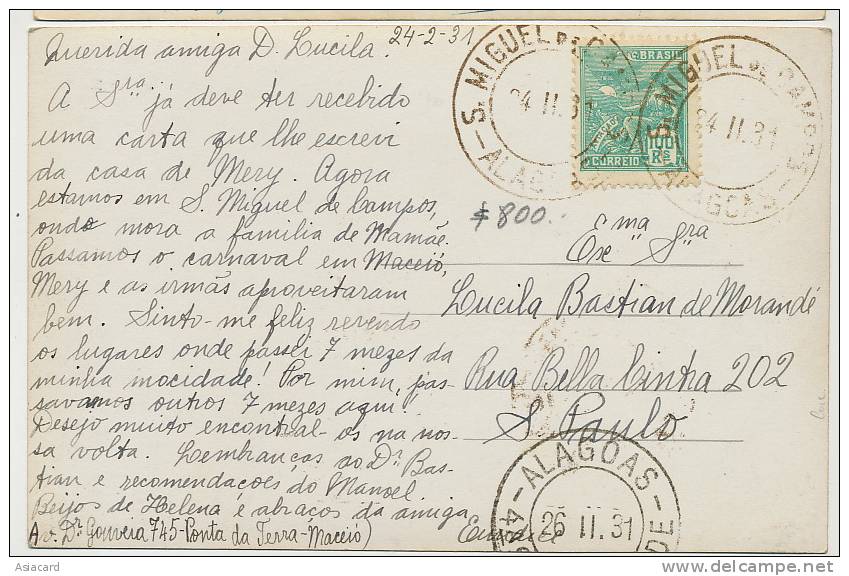 24-2-31
Querida amiga D. Lucila.
A Sra já deve ter recebido
uma carta que lhe escrevi
da casa de Mery. Agora
estamos em S. Miguel de Campos,
onde mora a familia de Mamãe.
Passamos o carnaval em Maceió,
Mery e as irmãs aproveitaram
bem. Sinto-me feliz revendo
os lugares onde passei 7 mezes da
minha mocidade! Por mim, pas-
savamos outros 7 mezes aqui!
Desejo muito encontral-os na nos-
sa volta. Lembranças ao Dr. Bas-
tian e recomendações do Manoel
Beijos de Helena e abraços da amiga
Eunice
Av. Dr. Gouveia 745-Ponta da Terra-Maceió)
S. MIGUEL DE CAMPOS
24 II.31
ALAGOAS
BRASIL
100
Rs
CORREIO
S. MIGUEL DE CAMPOS
24 II.31
ALAGOAS
$800.
Exma Sra
Lucila Bastian de Morandé
Rua Bella Cintra 202
S. Paulo
ALAGOAS
26 II.31
DE
Asiacard
delcampe.net